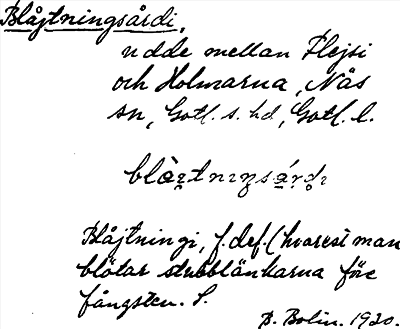 Blåjtningsårdi,
udde mellan Flejsi
och Holmarna, Näs
sn, Gotl. s. hd, Gotl. l.
Blåjtningi, f. def. (hvaresi man
blötar stubblänkarna före
fångsten. S.
B. Bolin. 1920.